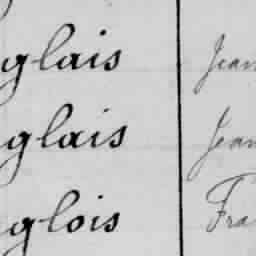 glais Jean
glais Jean
glois Fra